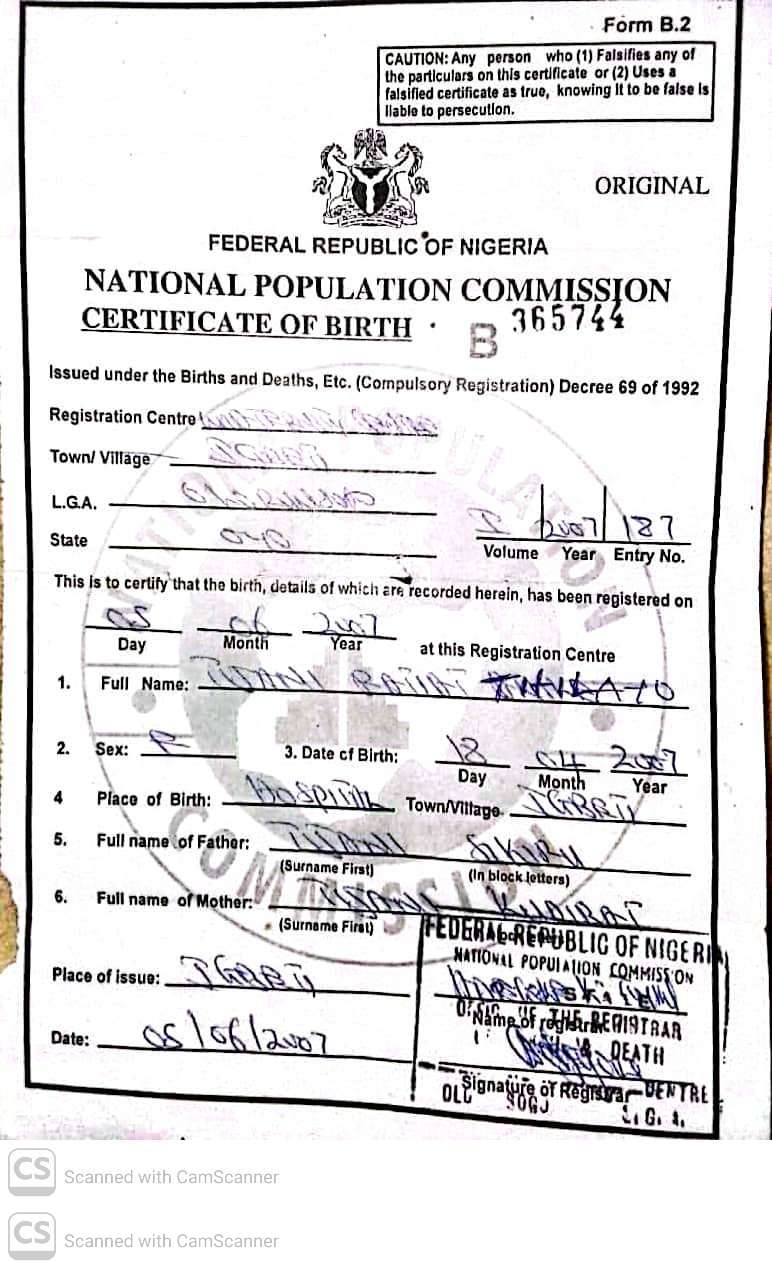 Form B.2
CAUTION: Any person who (1) Falsifies any of
the particulars on this certificate or (2) Uses a
falsified certificate as true, knowing it to be false is
liable to persecution.
ORIGINAL
FEDERAL REPUBLIC OF NIGERIA
NATIONAL POPULATION COMMISSION
CERTIFICATE OF BIRTH B 365744
Issued under the Births and Deaths, Etc. (Compulsory Registration) Decree 69 of 1992
Registration Centre
Town/ Village
L.G.A.
State OYO
I 2007 187
Volume Year Entry No.
This is to certify that the birth, details of which are recorded herein, has been registered on
05 06 2007
Day Month Year at this Registration Centre
1. Full Name: TIJANI
2. Sex: F 3. Date of Birth: 18 04 2007
Day Month Year
4 Place of Birth: HOSPITAL Town/Village IGBETI
5. Full name of Father: TIJANI SIKIRU
(Surname First) (In block letters)
6. Full name of Mother: TIJANI KUDIRAT
(Surname First)
FEDERAL REPUBLIC OF NIGERIA
NATIONAL POPULATION COMMISSION
Place of issue: IGBETI
Name of registrar
REGISTRAR
DEATH
Date: 05/06/2007
Signature of Registrar
CENTRE
L.G.A.
NATIONAL POPULATION COMMISSION
CS Scanned with CamScanner
CS Scanned with CamScanner